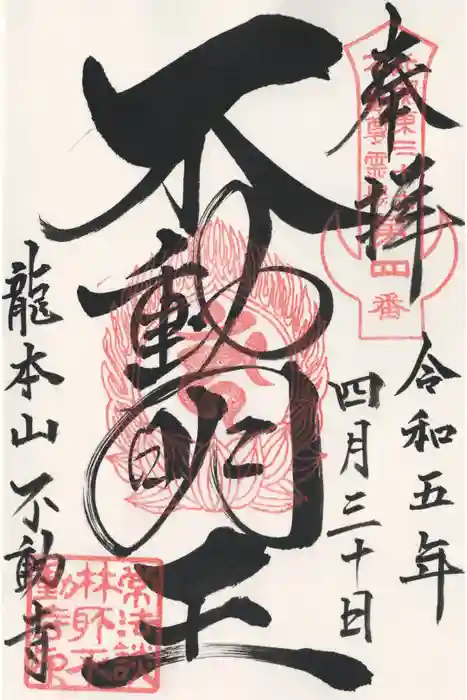 奉拝
第四番
令和五年
四月三十日
不動明王
龍本山不動寺